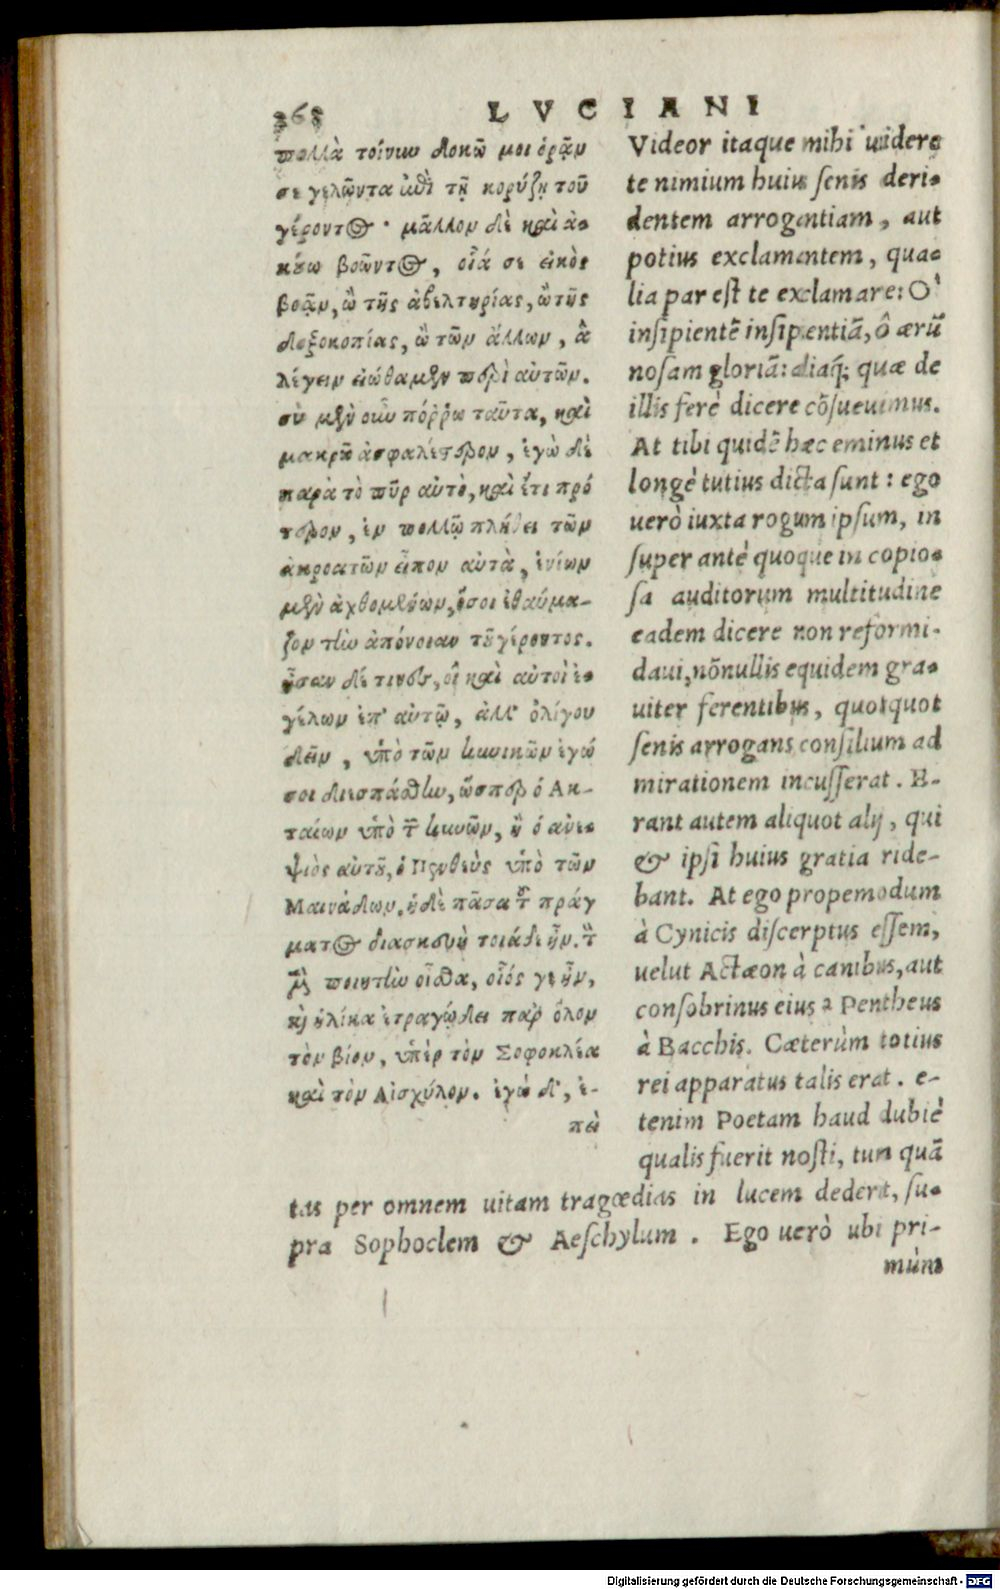 368 LVCIANI
πολλὰ τοίνυν δοκῶ μοι ὁρᾷν
σε γελῶντα ἐπὶ τῇ κορύζῃ τοῦ
γέροντος· μᾶλλον δὲ καὶ ἀ-
κούω βοῶντος, οἷά σε εἰκὸς
βοᾷν, ὢ τῆς ἀβελτηρίας, ὢ τῆς
δοξοκοπίας, ὢ τῶν ἄλλων, ἃ
λέγειν εἰώθαμεν περὶ αὐτῶν.
σὺ μὲν οὖν πόῤῥω ταῦτα, καὶ
μακρῷ ἀσφαλέστερον, ἐγὼ δὲ
παρὰ τὸ πῦρ αὐτὸ, καὶ ἔτι πρό
τερον, ἐν πολλῷ πλήθει τῶν
ἀκροατῶν εἶπον αὐτὰ, ἐνίων
μὲν ἀχθομένων, ὅσοι ἐθαύμα-
ζον τὴν ἀπόνοιαν τοῦ γέροντος.
ἦσαν δέ τινες, οἳ καὶ αὐτοὶ ἐ-
γέλων ἐπ' αὐτῷ, ἀλλ' ὀλίγου
δεῖν, ὑπὸ τῶν κυνικῶν ἐγώ
σοι διεσπάσθην, ὥσπερ ὁ Ακ-
ταίων ὑπὸ τῶν κυνῶν, ἢ ὁ ἀνε-
ψιὸς αὐτοῦ, ὁ Πενθεὺς ὑπὸ τῶν
Μαινάδων. ἡ δὲ πᾶσα τοῦ πράγ
ματος διασκευὴ τοιάδε ἦν. τὸν
μὲν ποιητὴν οἶσθα, οἷός γε ἦν,
καὶ ἡλίκα ἐτραγῴδει παρ' ὅλον
τὸν βίον, ὑπὲρ τὸν Σοφοκλέα
καὶ τὸν Αἰσχύλον. ἐγὼ δ', ἐ-
πεὶ
Videor itaque mihi uidere
te nimium huius senis deri-
dentem arrogantiam, aut
potius exclamantem, qua-
lia par est te exclamare: O
insipientē insipientiā, ô ærū
nosam gloriā: aliaq́; quæ de
illis ferè dicere cōsueuimus.
At tibi quidē hæc eminus et
longè tutius dicta sunt: ego
uerò iuxta rogum ipsum, in
super antè quoque in copio-
sa auditorum multitudine
eadem dicere non reformi-
daui, nōnullis equidem gra-
uiter ferentibus, quotquot
senis arrogans consilium ad
mirationem incusserat. E-
rant autem aliquot alij, qui
& ipsi huius gratia ride-
bant. At ego propemodum
à Cynicis discerptus essem,
uelut Actæon à canibus, aut
consobrinus eius Pentheus
à Bacchis. Cæterùm totius
rei apparatus talis erat. e-
tenim Poetam haud dubiè
qualis fuerit nosti, tum quā
tas per omnem uitam tragœdias in lucem dederit, su-
pra Sophoclem & Aeschylum. Ego uerò ubi pri-
mùm
Digitalisierung gefördert durch die Deutsche Forschungsgemeinschaft - DFG